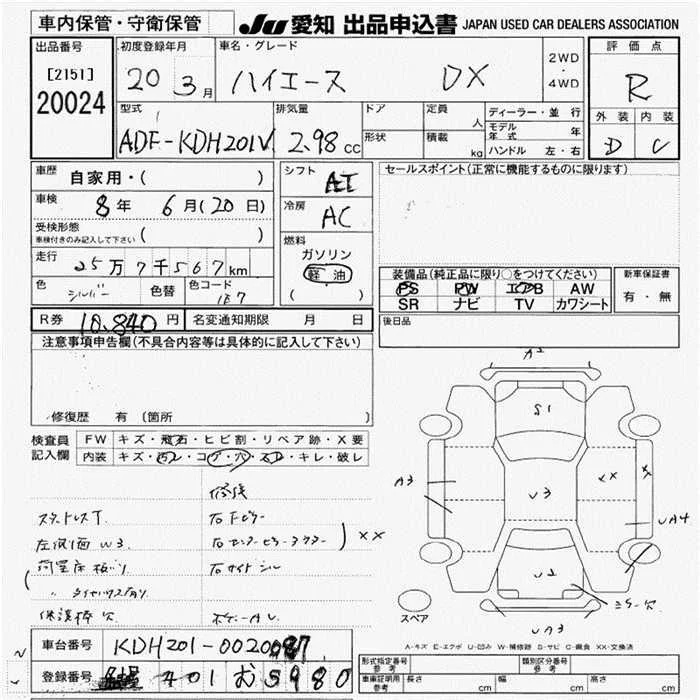 車内保管・守衛保管
JU 愛知 出品申込書 JAPAN USED CAR DEALERS ASSOCIATION
出品番号
[2151]
20024
初度登録年月
20 3月
車名・グレード
ハイエース DX
2WD
・
4WD
評価点
R
外装 内装
D C
型式
ADF-KDH201V
排気量
2.98 cc
ドア
形状
定員 人
積載 kg
ディーラー・並行
モデル年式 年
ハンドル 左・右
車歴
自家用・( )
車検
8年 6月(20日)
受検形態
車検付きのみ記入して下さい ( )
走行
25万7千567km
色 シルバー 色替 色コード 1E7
シフト
AT
冷房
AC
燃料
ガソリン
軽油
( )
セールスポイント(正常に機能するものに限ります)
装備品(純正品に限り○をつけてください)
PS PW エアB AW
SR ナビ TV カワシート
新車保証書
有・無
R券 10,840円 名変通知期限 月 日
後日品
注意事項申告欄(不具合内容等は具体的に記入して下さい)
修復歴 有 (箇所
検査員
記入欄
FW キズ・飛石・ヒビ割・リペア跡・X要
内装 キズ・汚レ・コゲ・穴・スレ・キレ・破レ
修復
スタッドレスT
右Fピラー
左側面 W3
右センターピラーアウター
XX
荷室床板バリ
右サイドシル
保護棒欠
A2
S1
A3
V3
XX
XX
UA4
U2
ミラー欠
UA3
スペア
A-キズ E-エクボ U-凹み W-補修跡 S-サビ C-腐食 XX-交換済
車台番号 KDH201-0020087
登録番号 401 お 5980
形式指定番号 参考
類別区分番号 参考
車庫証明用 参考
長さ cm 幅 cm 高さ cm